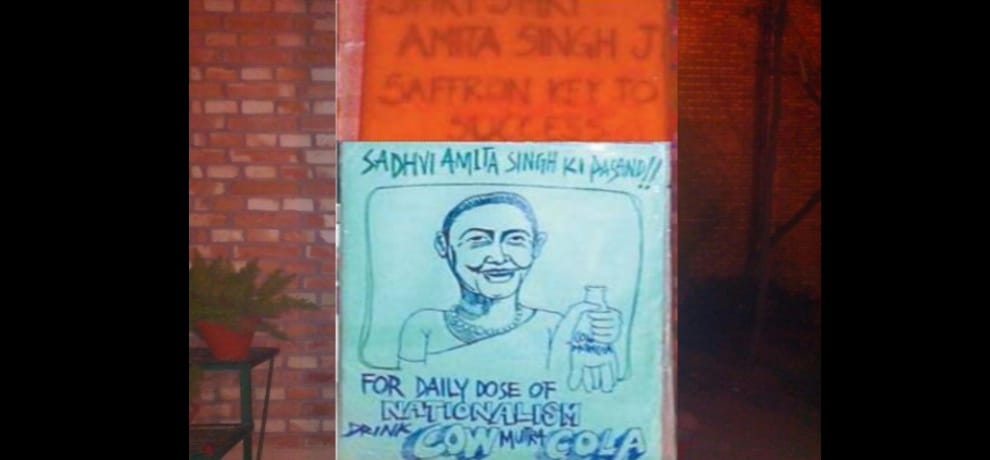 SHRI SHRI
AMITA SINGH JI
SAFFRON KEY TO
SUCCESS
SADHVI AMITA SINGH KI PASAND!!
COW
FOR DAILY DOSE OF
NATIONALISM
DRINK COW MUTRA COLA